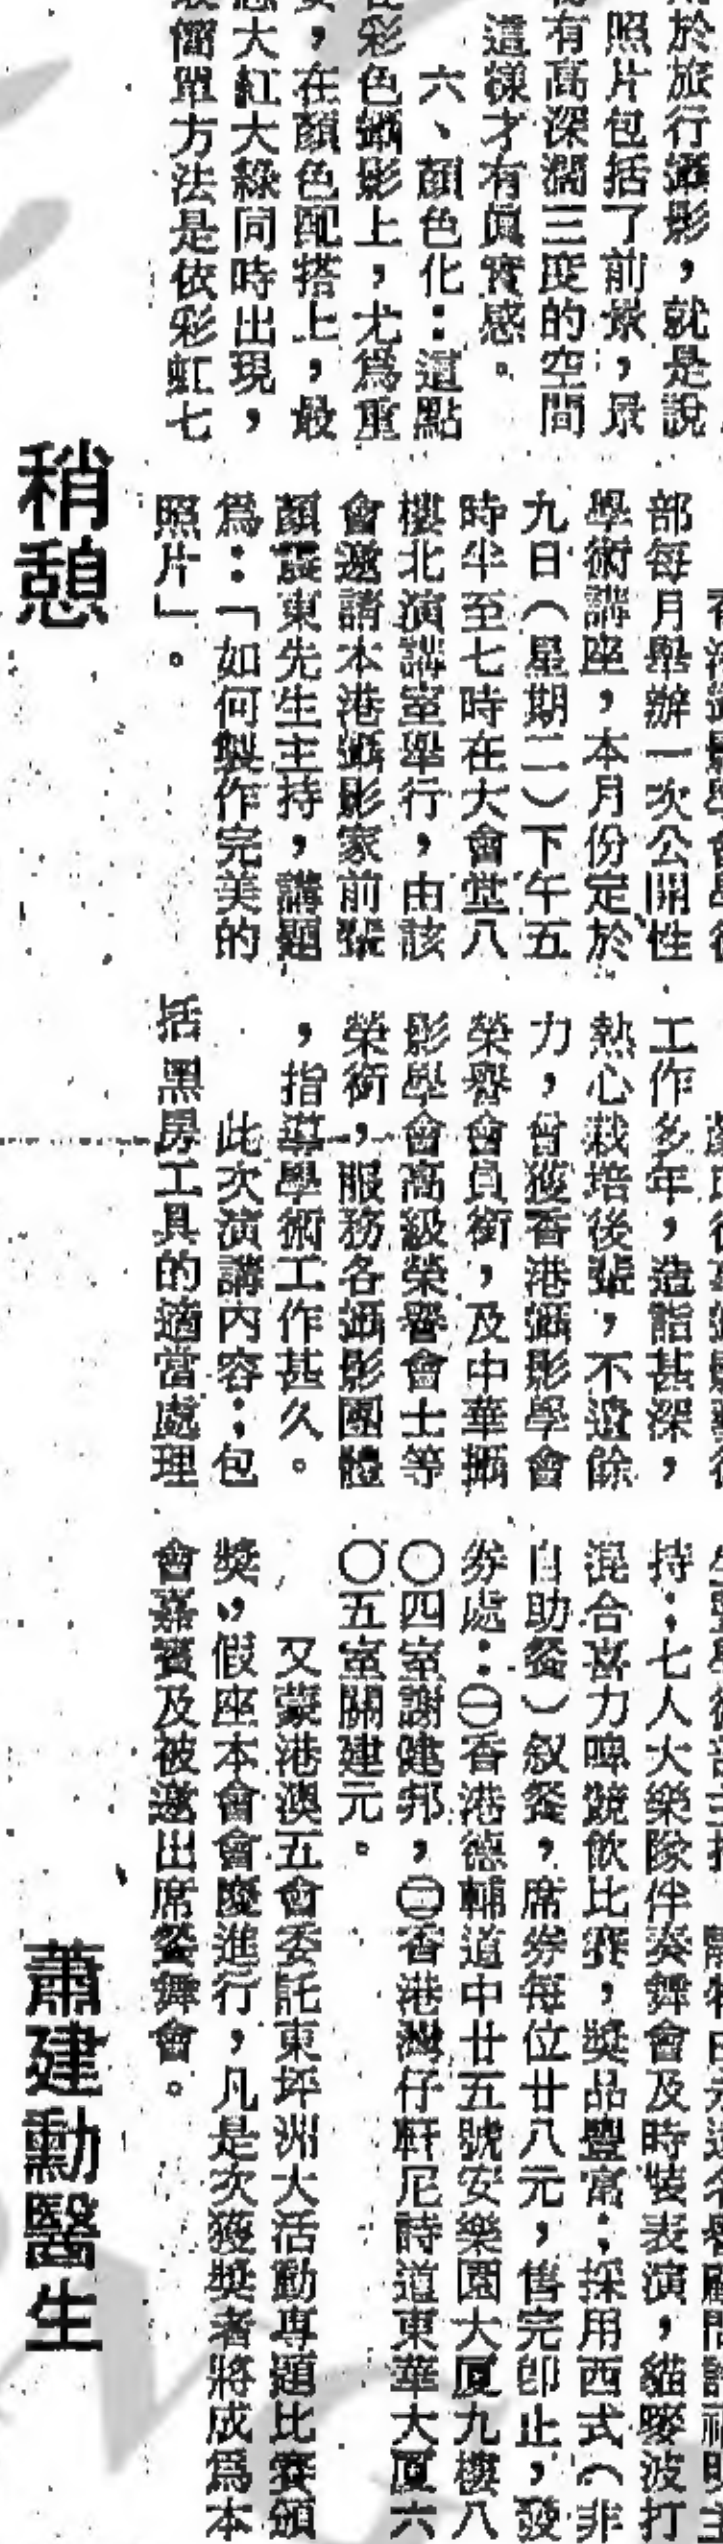 於旅行攝影，就是說
照片包括了前景，景
有高深濶三度的空間
這樣才有眞實感。
六、顏色化：這點
彩色攝影上，尤爲重
，在顏色配搭上，最
大紅大綠同時出現，
簡單方法是依彩虹七
部每月舉辦一次公開性
學術講座，本月份定於
九日（星期二）下午五
時半至七時在大會堂八
樓北演講室舉行，由該
會邀請本港攝影家前輩
顏震東先生主持，講題
爲：「如何製作完美的
照片」。
工作多年，造詣甚深，
熱心栽培後輩，不遺餘
力，曾獲香港攝影學會
榮譽會員銜，及中華攝
影學會高級榮譽會士等
榮銜，服務各攝影團體
，指導學術工作甚久。
此次演講內容：包
括黑房工具的適當處理
持；七人大樂隊伴奏舞會及時裝表演，貓嘜波打
混合喜力啤競飲比賽，獎品豐富；採用西式（非
自助餐）叙餐，席券每位廿八元，售完即止，發
券處：㊀香港德輔道中廿五號安樂園大厦九樓八
〇四室謝建邦，㊁香港灣仔軒尼詩道東華大厦六
〇五室關建元。
又蒙港澳五會委託東坪洲大活動專題比賽頒
獎，假座本會會慶進行，凡是次獲獎者將成爲本
會嘉賓及被邀出席餐舞會。
稍憩
蕭建勳醫生